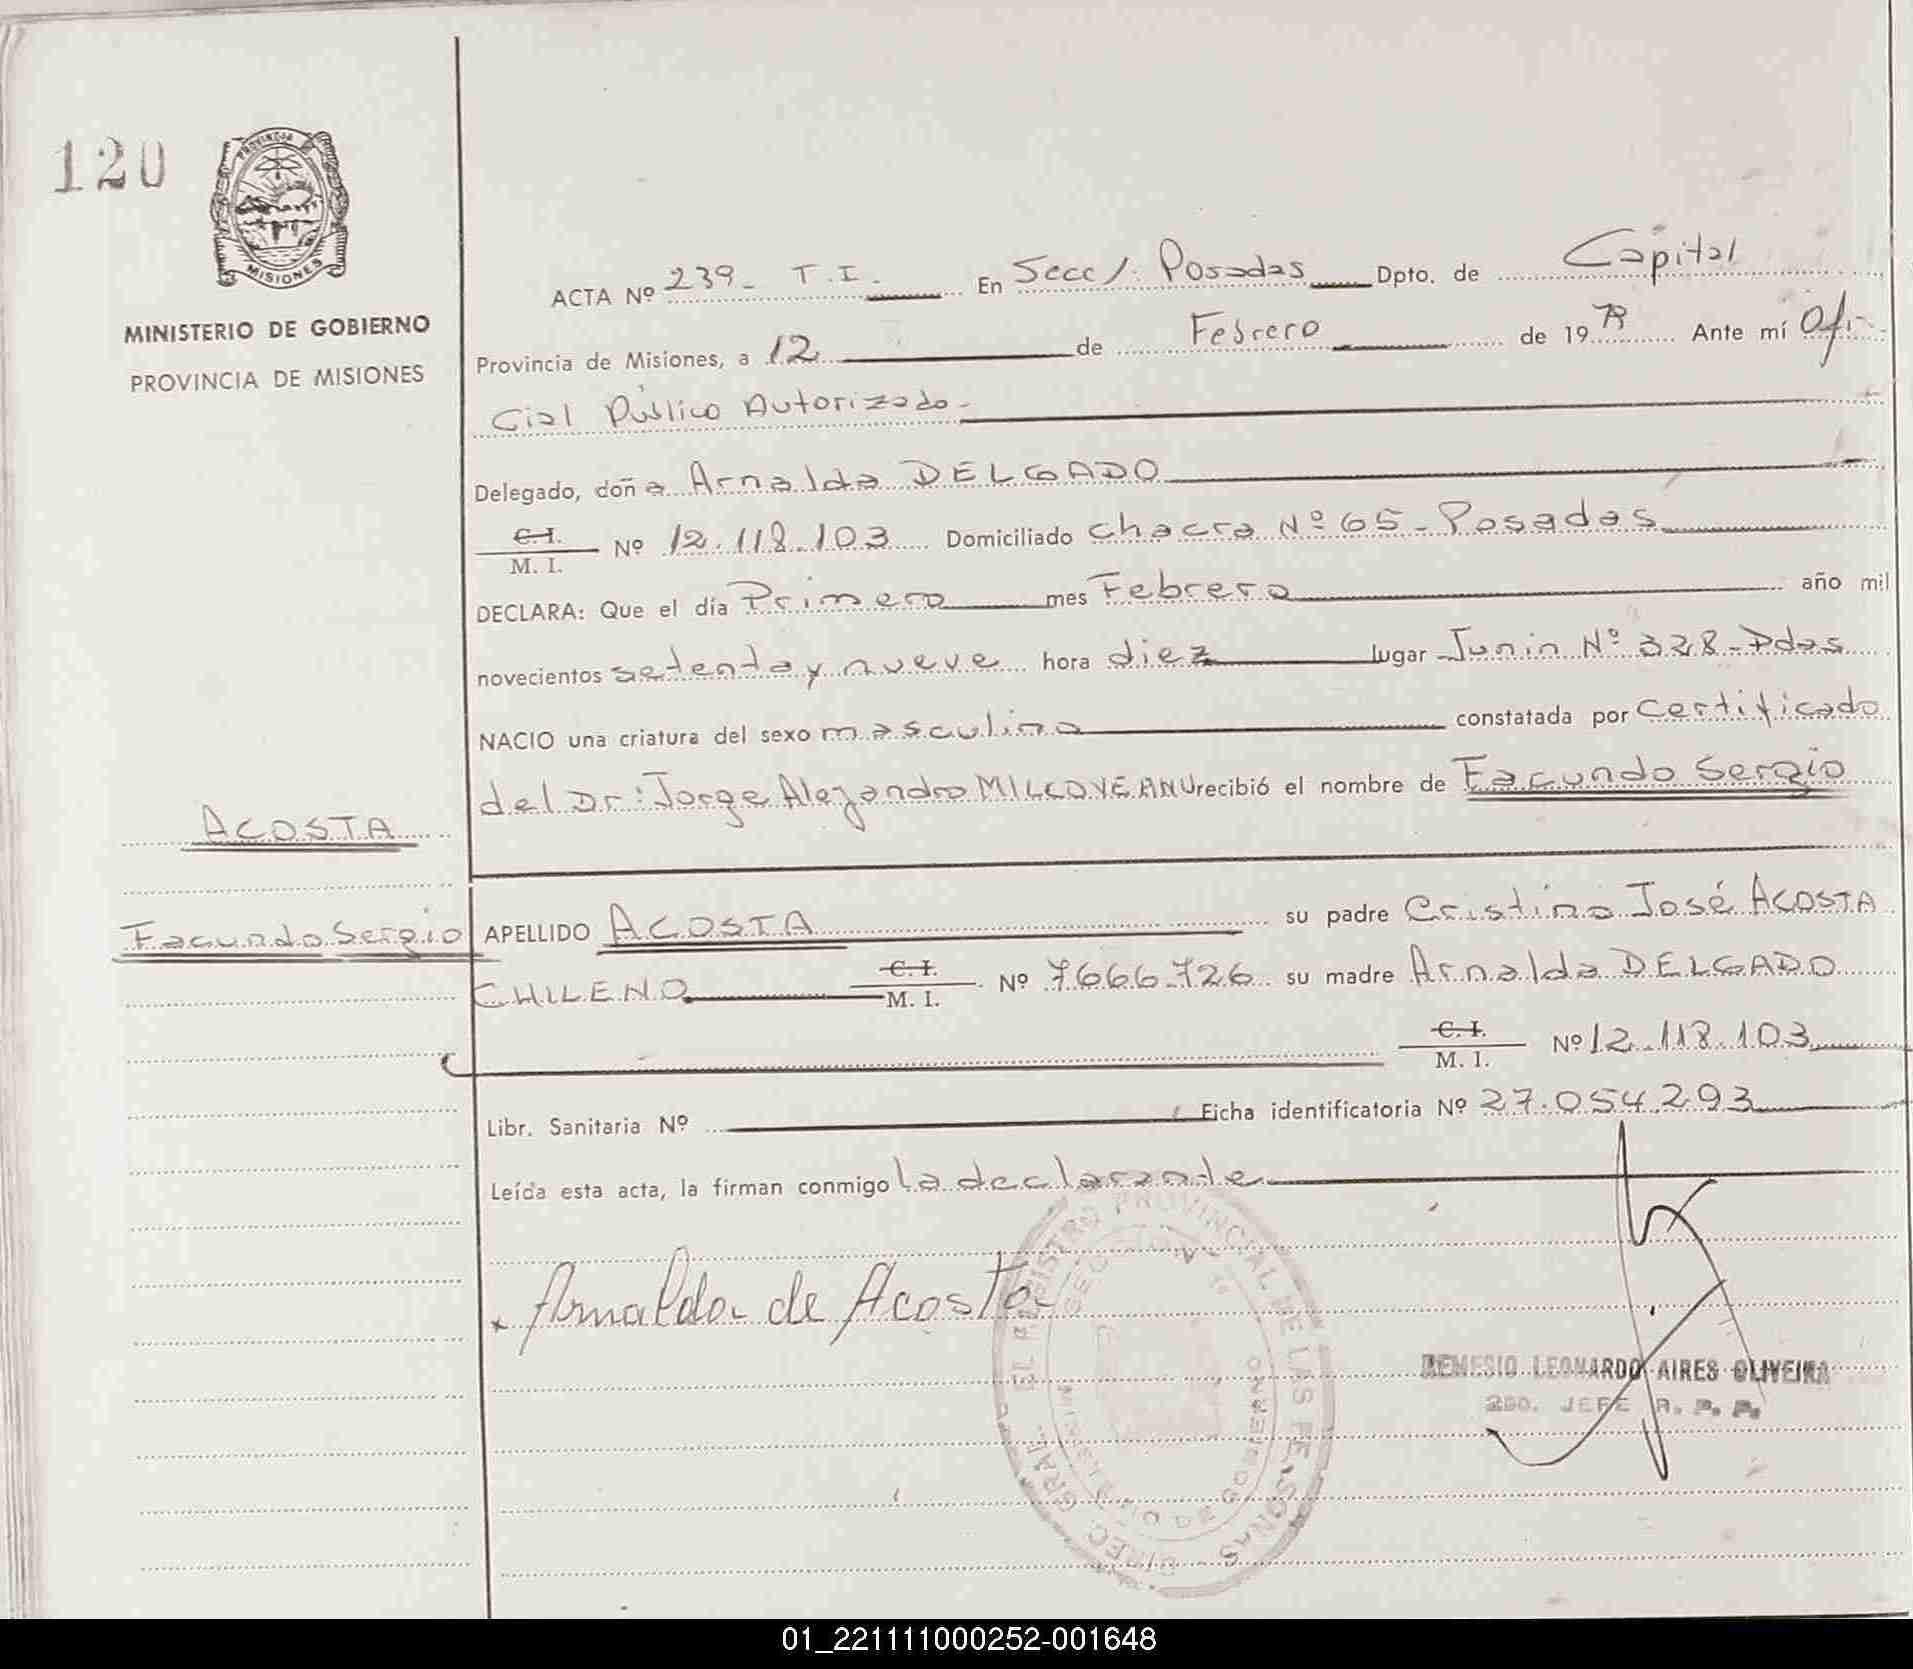 120
PROVINCIA
MISIONES
MINISTERIO DE GOBIERNO
PROVINCIA DE MISIONES
ACTA Nº 239- T.I. En Secc/. Posadas Dpto. de Capital
Provincia de Misiones, a 12 de Febrero de 19 79 Ante mí Ofi-
cial Público Autorizado-
Delegado, doña Arnalda DELGADO
C.I.
M. I. Nº 12.118.103 Domiciliado chacra Nº 65- Posadas
DECLARA: Que el día Primero mes Febrero año mil
novecientos setenta y nueve hora diez lugar Junin Nº 328-Pdas
NACIO una criatura del sexo masculino constatada por certificado
del Dr: Jorge Alejandro MILCOVEANU recibió el nombre de Facundo Sergio
ACOSTA
Facundo Sergio
APELLIDO ACOSTA su padre Cristino José ACOSTA
CHILENO C.I.
M. I. Nº 7.666.726 su madre Arnalda DELGADO
C.I.
M. I. Nº 12.118.103
Libr. Sanitaria Nº Ficha identificatoria Nº 27.054.293
Leída esta acta, la firman conmigo la declarante
Arnalda de Acosta
DIREC. GRAL. DEL REGISTRO PROVINCIAL DE LAS PERSONAS
MINISTERIO DE GOBIERNO
REMESIO LEONARDO AIRES OLIVEIRA
2DO. JEFE R. P. P.
01_221111000252-001648